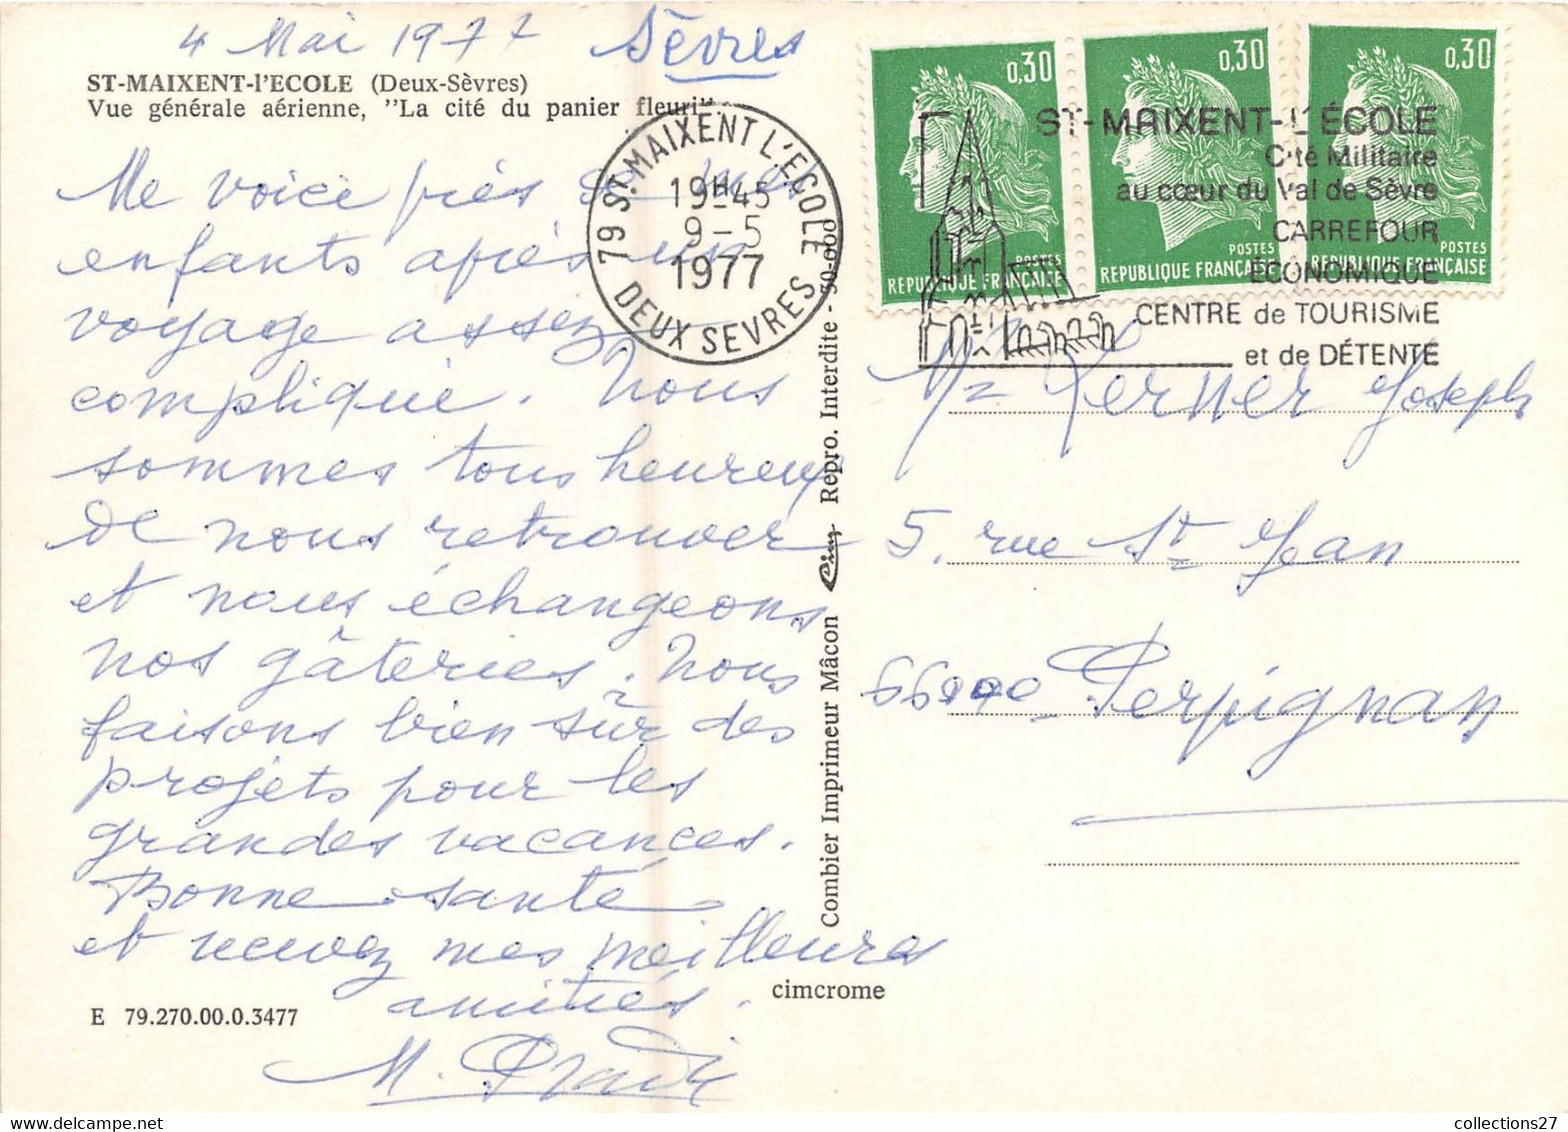 4 Mai 1977
Sèvres
ST-MAIXENT-l'ECOLE (Deux-Sèvres)
Vue générale aérienne, "La cité du panier fleuri".
Me voici près de mes
enfants après un
voyage assez
compliqué. Nous
sommes tous heureux
de nous retrouver
et nous échangeons
nos gâteries. Nous
faisons bien sûr des
projets pour les
grandes vacances.
Bonne santé
et recevez mes meilleures
amitiés.
M.
E 79.270.00.0.3477
79 ST-MAIXENT L'ECOLE
19H45
9-5
1977
DEUX SEVRES
Combier Imprimeur Mâcon Cim Repro. Interdite - 50-000
cimcrome
0,30
POSTES
REPUBLIQUE FRANÇAISE
0,30
POSTES
REPUBLIQUE FRANÇAISE
0,30
POSTES
REPUBLIQUE FRANÇAISE
ST-MAIXENT-L'ÉCOLE
Cité Militaire
au cœur du Val de Sèvre
CARREFOUR
ÉCONOMIQUE
CENTRE de TOURISME
et de DÉTENTE
Mr Lerner Joseph
5, rue St Jean
66000 - Perpignan
collections27